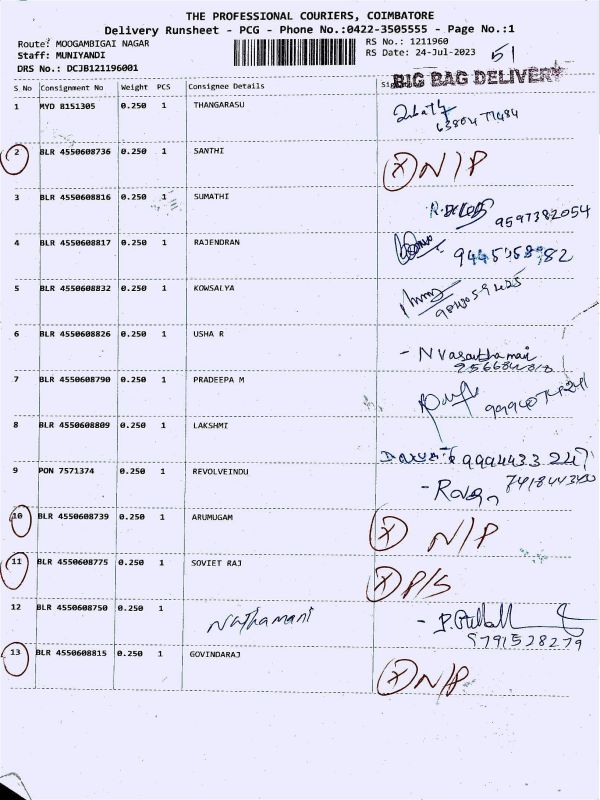 THE PROFESSIONAL COURIERS, COIMBATORE
Delivery Runsheet - PCG - Phone No.:0422-3505555 - Page No.:1
Route: MOOGAMBIGAI NAGAR
RS No.: 1211960
Staff: MUNIYANDI
RS Date: 24-Jul-2023
51
DRS No.: DCJB121196001
BIG BAG DELIVERY
S No Consignment No Weight PCS Consignee Details
1 MYD 8151305 0.250 1 THANGARASU
2 BLR 4550608736 0.250 1 SANTHI
X N/P
3 BLR 4550608816 0.250 1 SUMATHI
9597382054
4 BLR 4550608817 0.250 1 RAJENDRAN
5 BLR 4550608832 0.250 1 KOWSALYA
6 BLR 4550608826 0.250 1 USHA R
- N Vasanthamani
7 BLR 4550608790 0.250 1 PRADEEPA M
8 BLR 4550608809 0.250 1 LAKSHMI
9994433 247
9 PON 7571374 0.250 1 REVOLVEINDU
10 BLR 4550608739 0.250 1 ARUMUGAM
X N/P
11 BLR 4550608775 0.250 1 SOVIET RAJ
X P/S
12 BLR 4550608750 0.250 1
Nathamani
9791528279
13 BLR 4550608815 0.250 1 GOVINDARAJ
X N/P